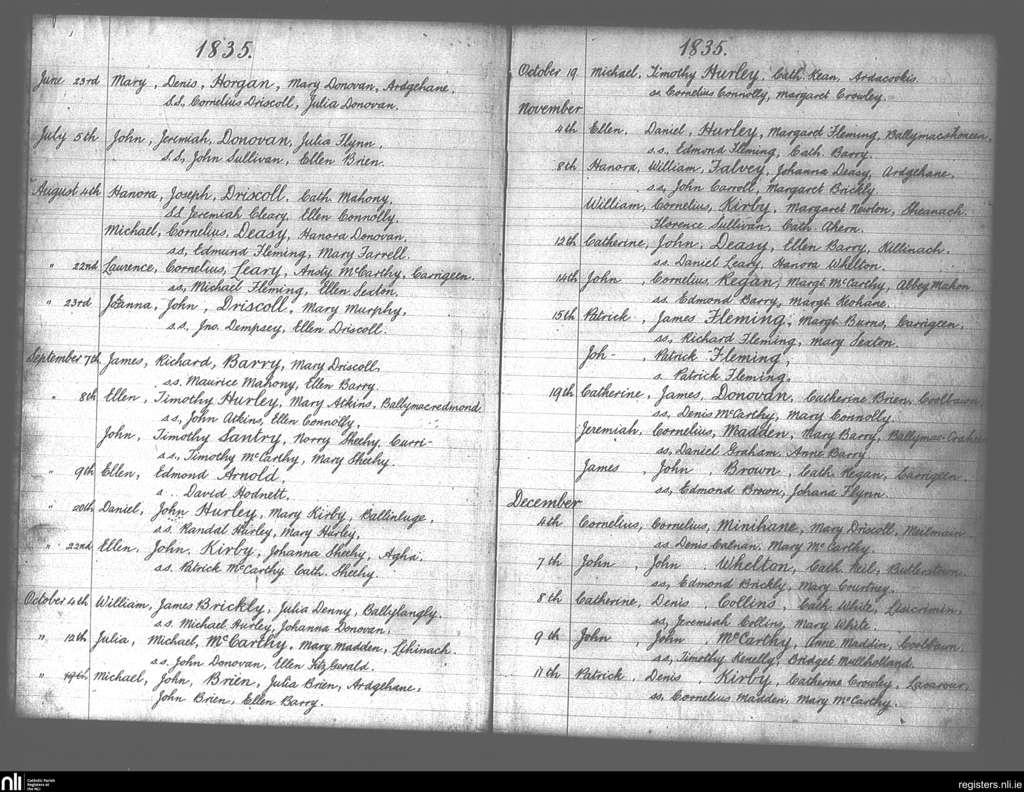 1835.
June 23rd Mary, Denis, Horgan, Mary Donovan, Ardgehane,
S.S., Cornelius Driscoll, Julia Donovan.
July 5th John, Jeremiah, Donovan, Julia Flynn,
S.S., John Sullivan, Ellen Brien.
August 4th Hanora, Joseph, Driscoll, Cath Mahony,
S.S. Jeremiah Cleary, Ellen Connolly.
Michael, Cornelius, Deasy, Hanora Donovan,
ss, Edmund Fleming, Mary Farrell.
" 22nd Laurence, Cornelius, Leary, Ansty McCarthy, Carrigeen.
ss, Michael Fleming, Ellen Sexton.
" 23rd Joanna, John, Driscoll, Mary Murphy,
s.s., Jno. Dempsey, Ellen Driscoll.
September 7th James, Richard, Barry, Mary Driscoll,
s.s. Maurice Mahony, Ellen Barry.
" 8th Ellen, Timothy Hurley, Mary Atkins, Ballymacredmond.
s.s, John Atkins, Ellen Connolly,
John, Timothy Santry, Norry Sheehy, Curri-
s.s., Timothy McCarthy, Mary Sheehy.
" 9th Ellen, Edmond Arnold,
s.. David Hodnett.
" 20th Daniel, John Hurley, Mary Kirby, Ballinluge,
s.s. Randal Hurley, Mary Hurley,
" 22nd Ellen, John, Kirby, Johanna Sheehy, Agha.
ss. Patrick McCarthy Cath. Sheehy.
October 4th William, James Brickly, Julia Denny, Ballylangly.
s.s. Michael Hurley, Johanna Donovan,
" 12th Julia, Michael, McCarthy, Mary Madden, Lihinach.
s.s. John Donovan, Ellen FitzGerald.
" 19th Michael, John, Brien, Julia Brien, Ardgehane,
John Brien, Ellen Barry.
1835.
October 19 Michael, Timothy Hurley, Cath. Kean, Ardacookis.
ss Cornelius Connolly, Margaret Crowley.
November
4th Ellen, Daniel, Hurley, Margaret Fleming,
s.s. Edmond Fleming, Cath. Barry.
8th Hanora, William, Falvey, Johanna Deasy, Ardgehane.
s.s, John Carroll, Margaret Brickly
William, Cornelius, Kirby, Margaret Newton, Sheanach.
Florence Sullivan, Cath Ahern.
12th Catherine, John, Deasy, Ellen Barry, Killinach.
ss. Daniel Leary, Hanora Whelton.
14th John, Cornelius, Regan, Margt McCarthy, Abbey Mahon
ss. Edmond Barry, Margt Keohane.
15th Patrick, James Fleming, Margt Burns, Carrigeen,
ss, Richard Fleming, Mary Sexton.
Joh-, Patrick Fleming,
s. Patrick Fleming.
19th Catherine, James, Donovan, Catherine Brien, Coolbawn
ss, Denis McCarthy, Mary Connolly.
Jeremiah, Cornelius, Madden, Mary Barry,
ss, Daniel Graham, Anne Barry.
James, John, Brown, Cath Regan, Carrigeen.
ss, Edmond Brown, Johana Flynn.
December
4th Cornelius, Cornelius, Minihane, Mary Driscoll,
ss. Denis Calnan, Mary McCarthy.
7th John, John, Whelton, Cath Neil, Butlerstown.
ss, Edmond Brickly, Mary Courtney.
8th Catherine, Denis, Collins, Cath White, Liscrimin,
ss, Jeremiah Collins, Mary White.
9th John, John McCarthy, Anne Maddin, Coolbawn.
s.s, Timothy Kenelly, Bridget Mullholland.
11th Patrick, Denis, Kirby, Catherne Crowley, Lacarour,
ss, Cornelius Madden, Mary McCarthy.
nli
Catholic Parish
Registers at
the NLI
registers.nli.ie